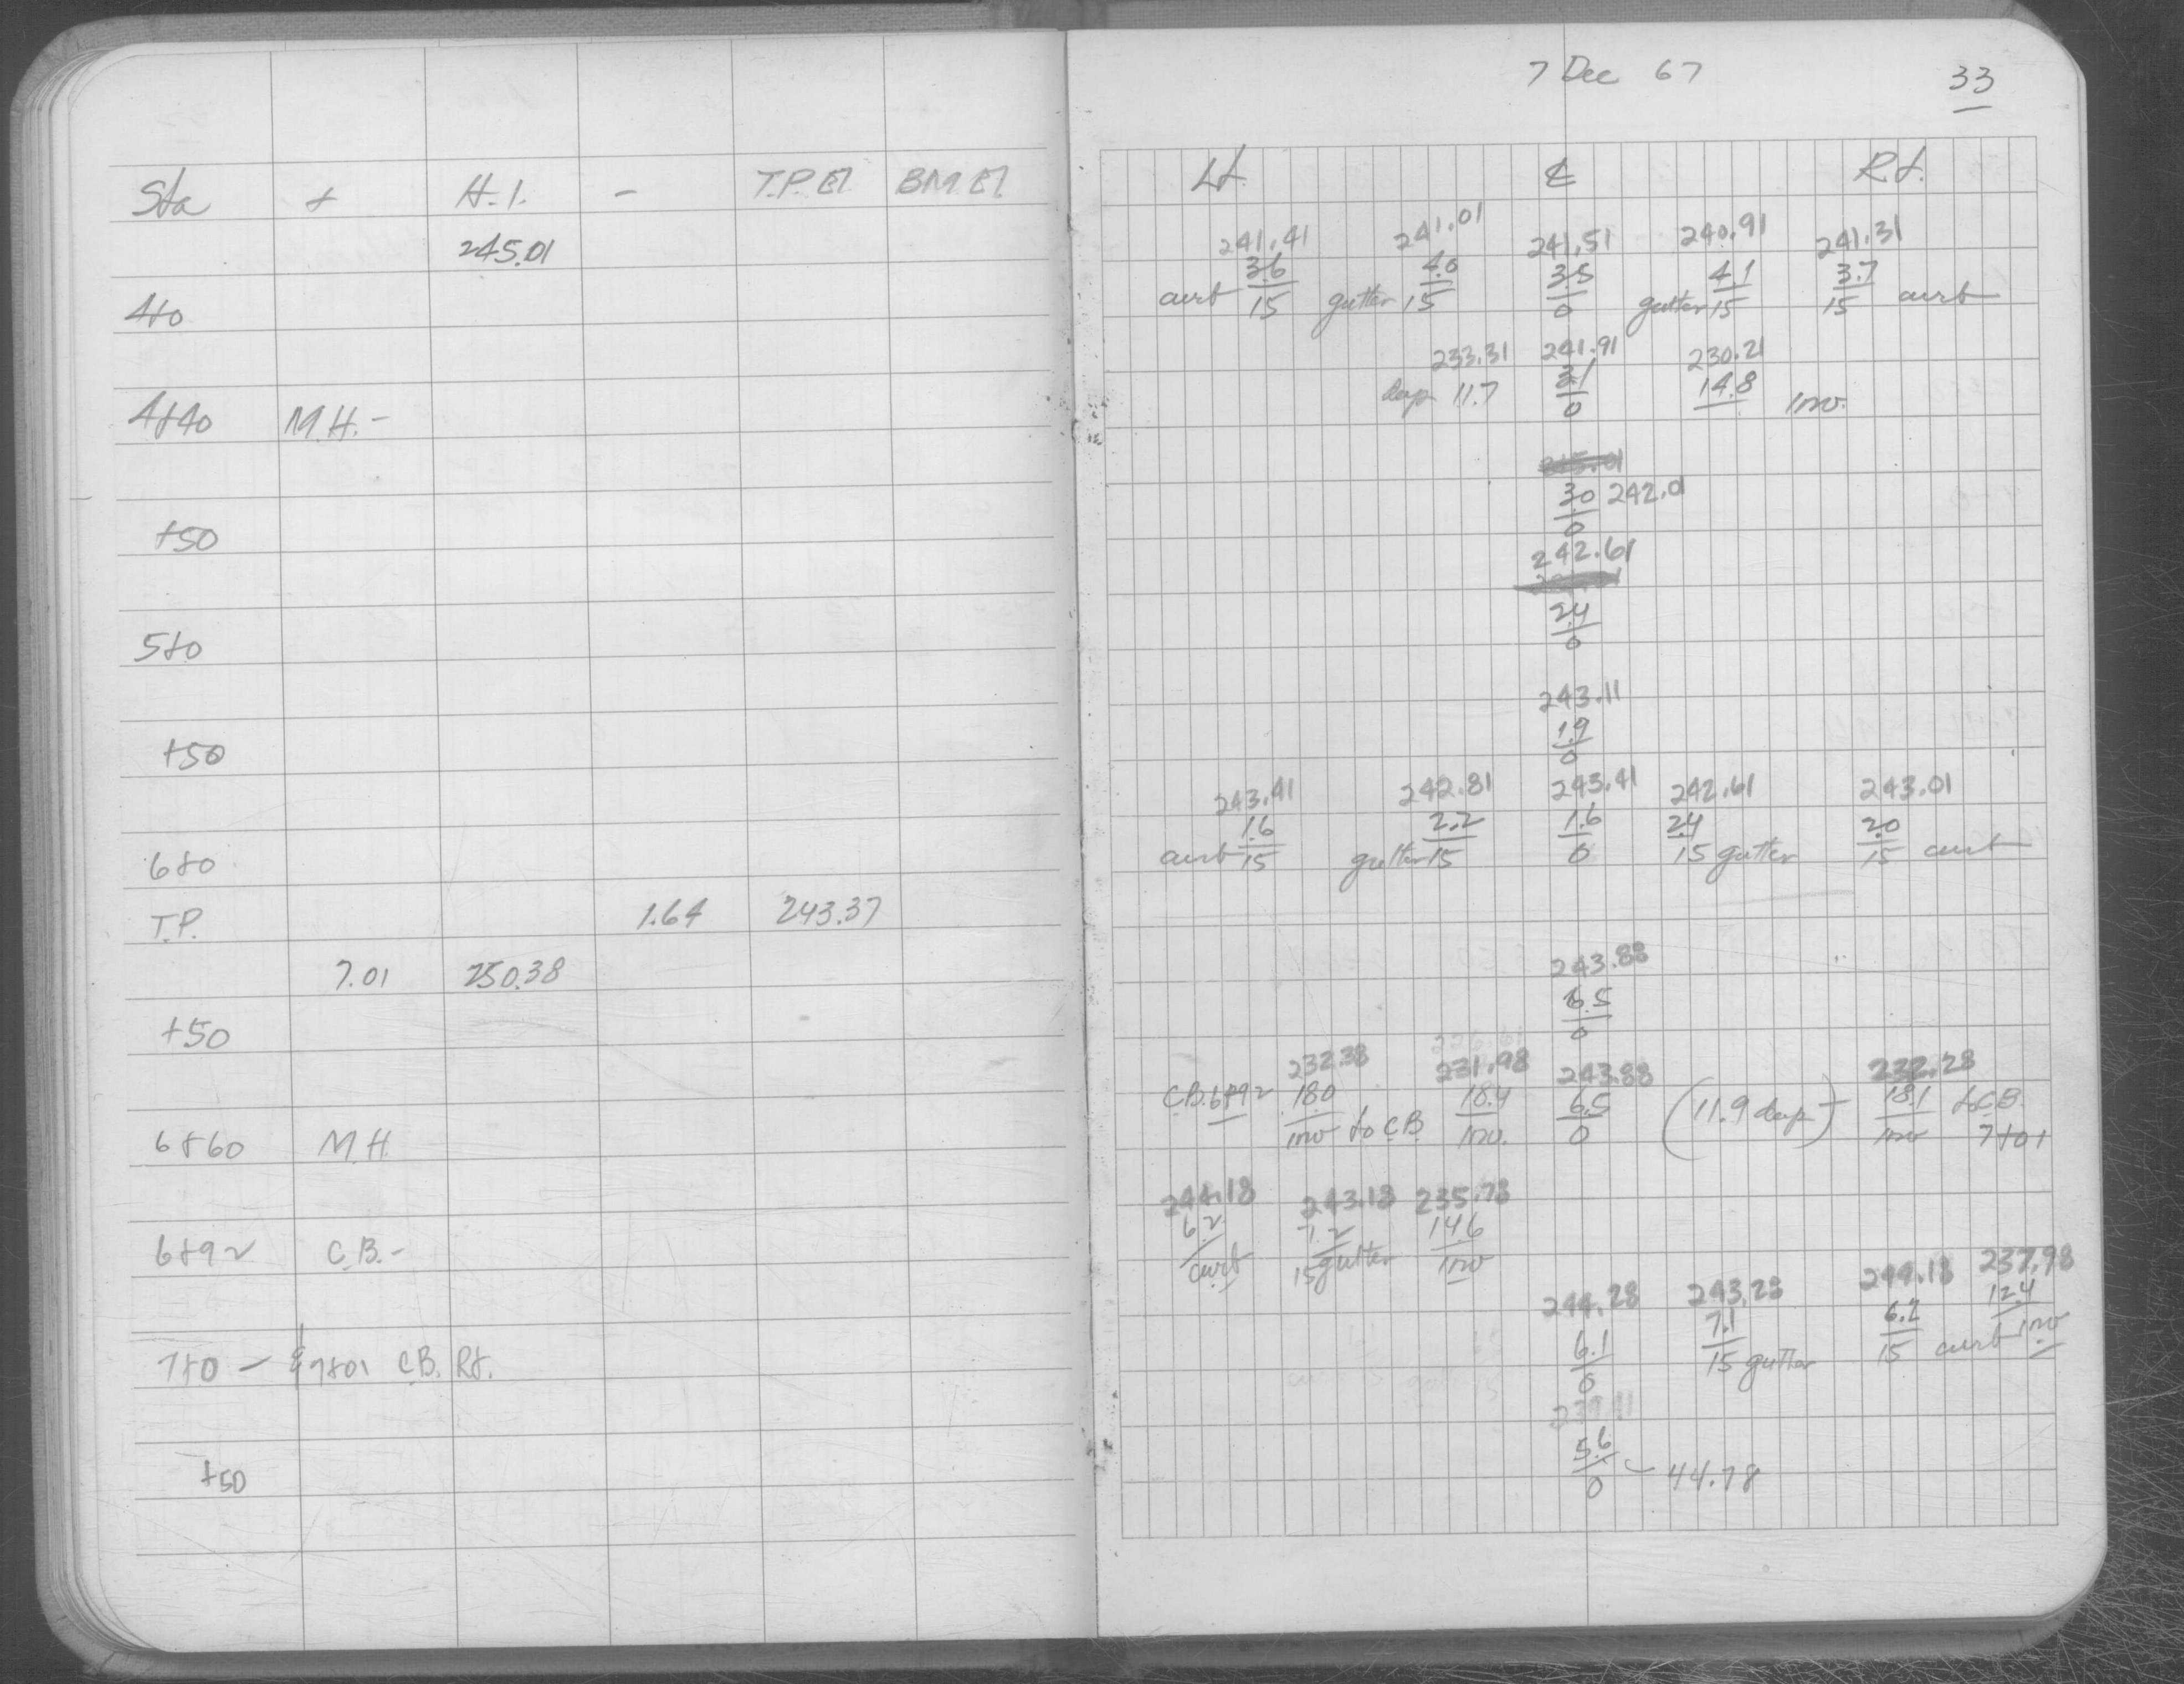 7 Dec 67
33
Sta + H.I. - T.P. El B.M. El
245.01
4+0
4+40 M.H. -
+50
5+0
+50
6+0
T.P. 1.64 243.37
7.01 250.38
+50
6+60 M.H.
6+92 C.B. -
7+0 - & 7+01 C.B. Rt.
+50
Lt. ℄ Rt.
241.41 241.01 241.51 240.91 241.31
3.6 4.0 3.5 4.1 3.7
curb 15 gutter 15 0 gutter 15 15 curb
233.31 241.91 230.21
deep 11.7 3.1 14.8 inv.
0
245.01
3.0 242.01
0
242.61
2.4
0
243.11
1.9
0
243.41 242.81 243.41 242.61 243.01
1.6 2.2 1.6 2.4 2.0
curb 15 gutter 15 0 15 gutter 15 curb
243.88
6.5
0
232.38 231.98 243.88 232.28
C.B. 6+92 18.0 18.4 6.5 (11.9 deep) 18.1 to C.B.
inv to C.B. inv. 0 inv 7+01
244.18 243.18 235.78
6.2 7.2 14.6
curb 15 gutter inv
244.28 243.28 244.18 237.98
6.1 7.1 6.2 12.4
0 15 gutter 15 curb inv
5.6
0 - 44.78